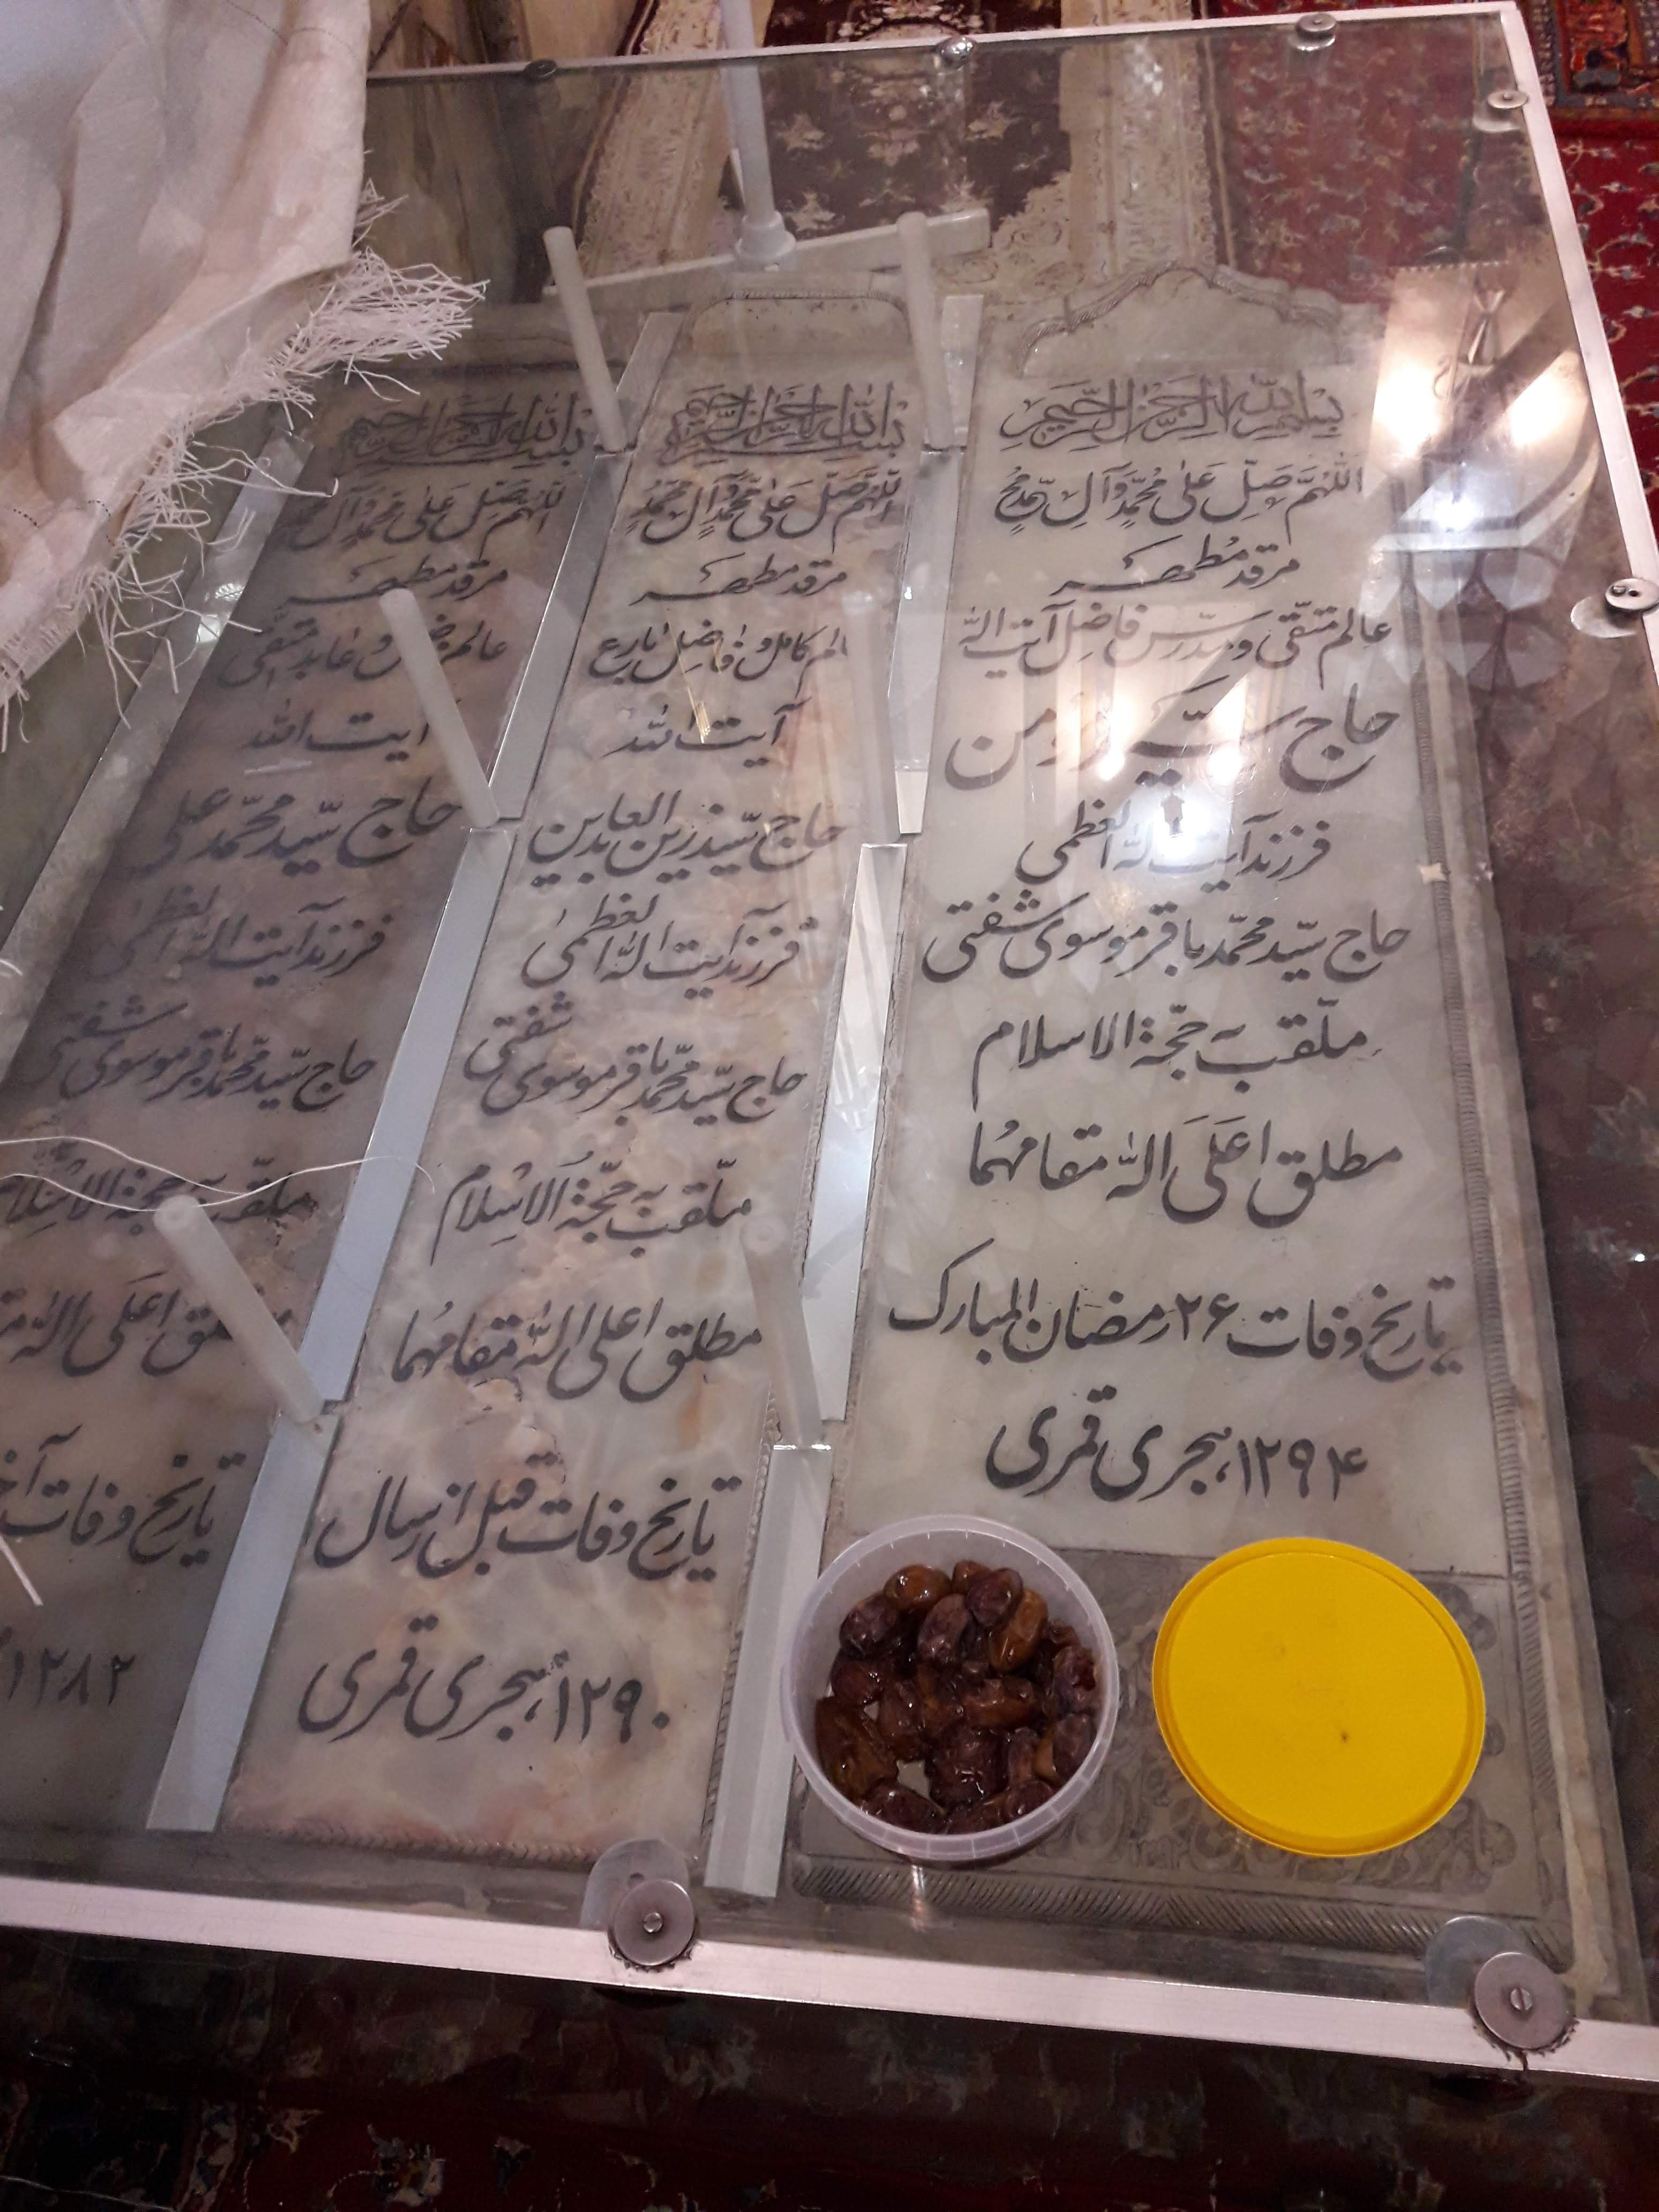 بسم الله الرحمن الرحیم
اللهم صل علی محمد و آل محمد
مرقد مطهر
عالم متقی و مدرس فاضل آیت الله
حاج سید مؤمن
فرزند آیت الله العظمی
حاج سید محمد باقر موسوی شفتی
ملقب به حجة الاسلام
مطلق اعلی الله مقامهما
تاریخ وفات ۲۶ رمضان المبارک
۱۲۹۴ هجری قمری
بسم الله الرحمن الرحیم
اللهم صل علی محمد و آل محمد
مرقد مطهر
عالم کامل و فاضل بارع
آیت الله
حاج سید زین العابدین
فرزند آیت الله العظمی
حاج سید محمد باقر موسوی شفتی
ملقب به حجة الاسلام
مطلق اعلی الله مقامهما
تاریخ وفات قبل از سال
۱۲۹۰ هجری قمری
بسم الله الرحمن الرحیم
اللهم صل علی محمد و آل محمد
مرقد مطهر
عالم و عابد متقی
آیت الله
حاج سید محمد علی
فرزند آیت الله العظمی
حاج سید محمد باقر موسوی شفتی
ملقب به حجة الاسلام
اعلی الله
تاریخ وفات
۱۲۸۲